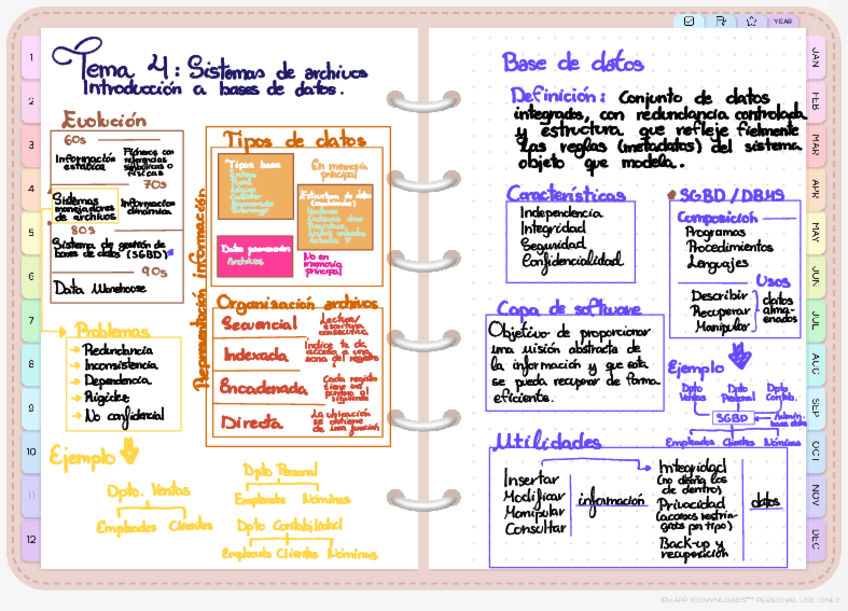 YEAR
Tema 4: Sistemas de archivos
Introducción a bases de datos.
Evolución
60s
Información estática
Ficheros con referencias simbólicas o físicas
70s
Sistemas manejadores de archivos
Información dinámica
80s
Sistema de gestión de bases de datos (SGBD)
90s
Data Warehouse
Problemas
→ Redundancia
→ Inconsistencia
→ Dependencia
→ Rigidez
→ No confidencial
Ejemplo
Dpto. Ventas
Empleados Clientes
Dpto Personal
Empleados Nóminas
Dpto Contabilidad
Empleados Clientes Nóminas
Representación información
Tipos de datos
Tipos base
En memoria principal
Estructura de datos
Datos persistentes
Archivos
No en memoria principal
Organización archivos
Secuencial
Lectura/escritura consecutiva
Indexada
Índice te da acceso a una zona del registro
Encadenada
Cada registro tiene un puntero al siguiente
Directa
La ubicación se obtiene de una función
Base de datos
Definición: Conjunto de datos
integrados, con redundancia controlada
y estructura que refleje fielmente
las reglas (metadatos) del sistema
objeto que modela..
Características
Independencia
Integridad
Seguridad
Confidencialidad
SGBD / DBMS
Composición
Programas
Procedimientos
Lenguajes
Usos
Describir
Recuperar
Manipular
datos almacenados
Capa de software
Objetivo de proporcionar
una visión abstracta de
la información y que esta
se pueda recuperar de forma
eficiente.
Ejemplo
Dpto Ventas
Dpto Personal
Dpto Contab.
SGBD
Empleados Clientes Nóminas
Utilidades
Insertar
Modificar
Manipular
Consultar
información
Integridad
(no daña los de dentro)
Privacidad
(accesos restringidos por tipo)
Back-up y recuperación
datos
1
2
3
4
5
6
7
8
9
10
11
12
JAN
FEB
MAR
APR
MAY
JUN
JUL
AUG
SEP
OCT
NOV
DEC
©HAPPYDOWNLOADS™ PERSONAL USE ONLY